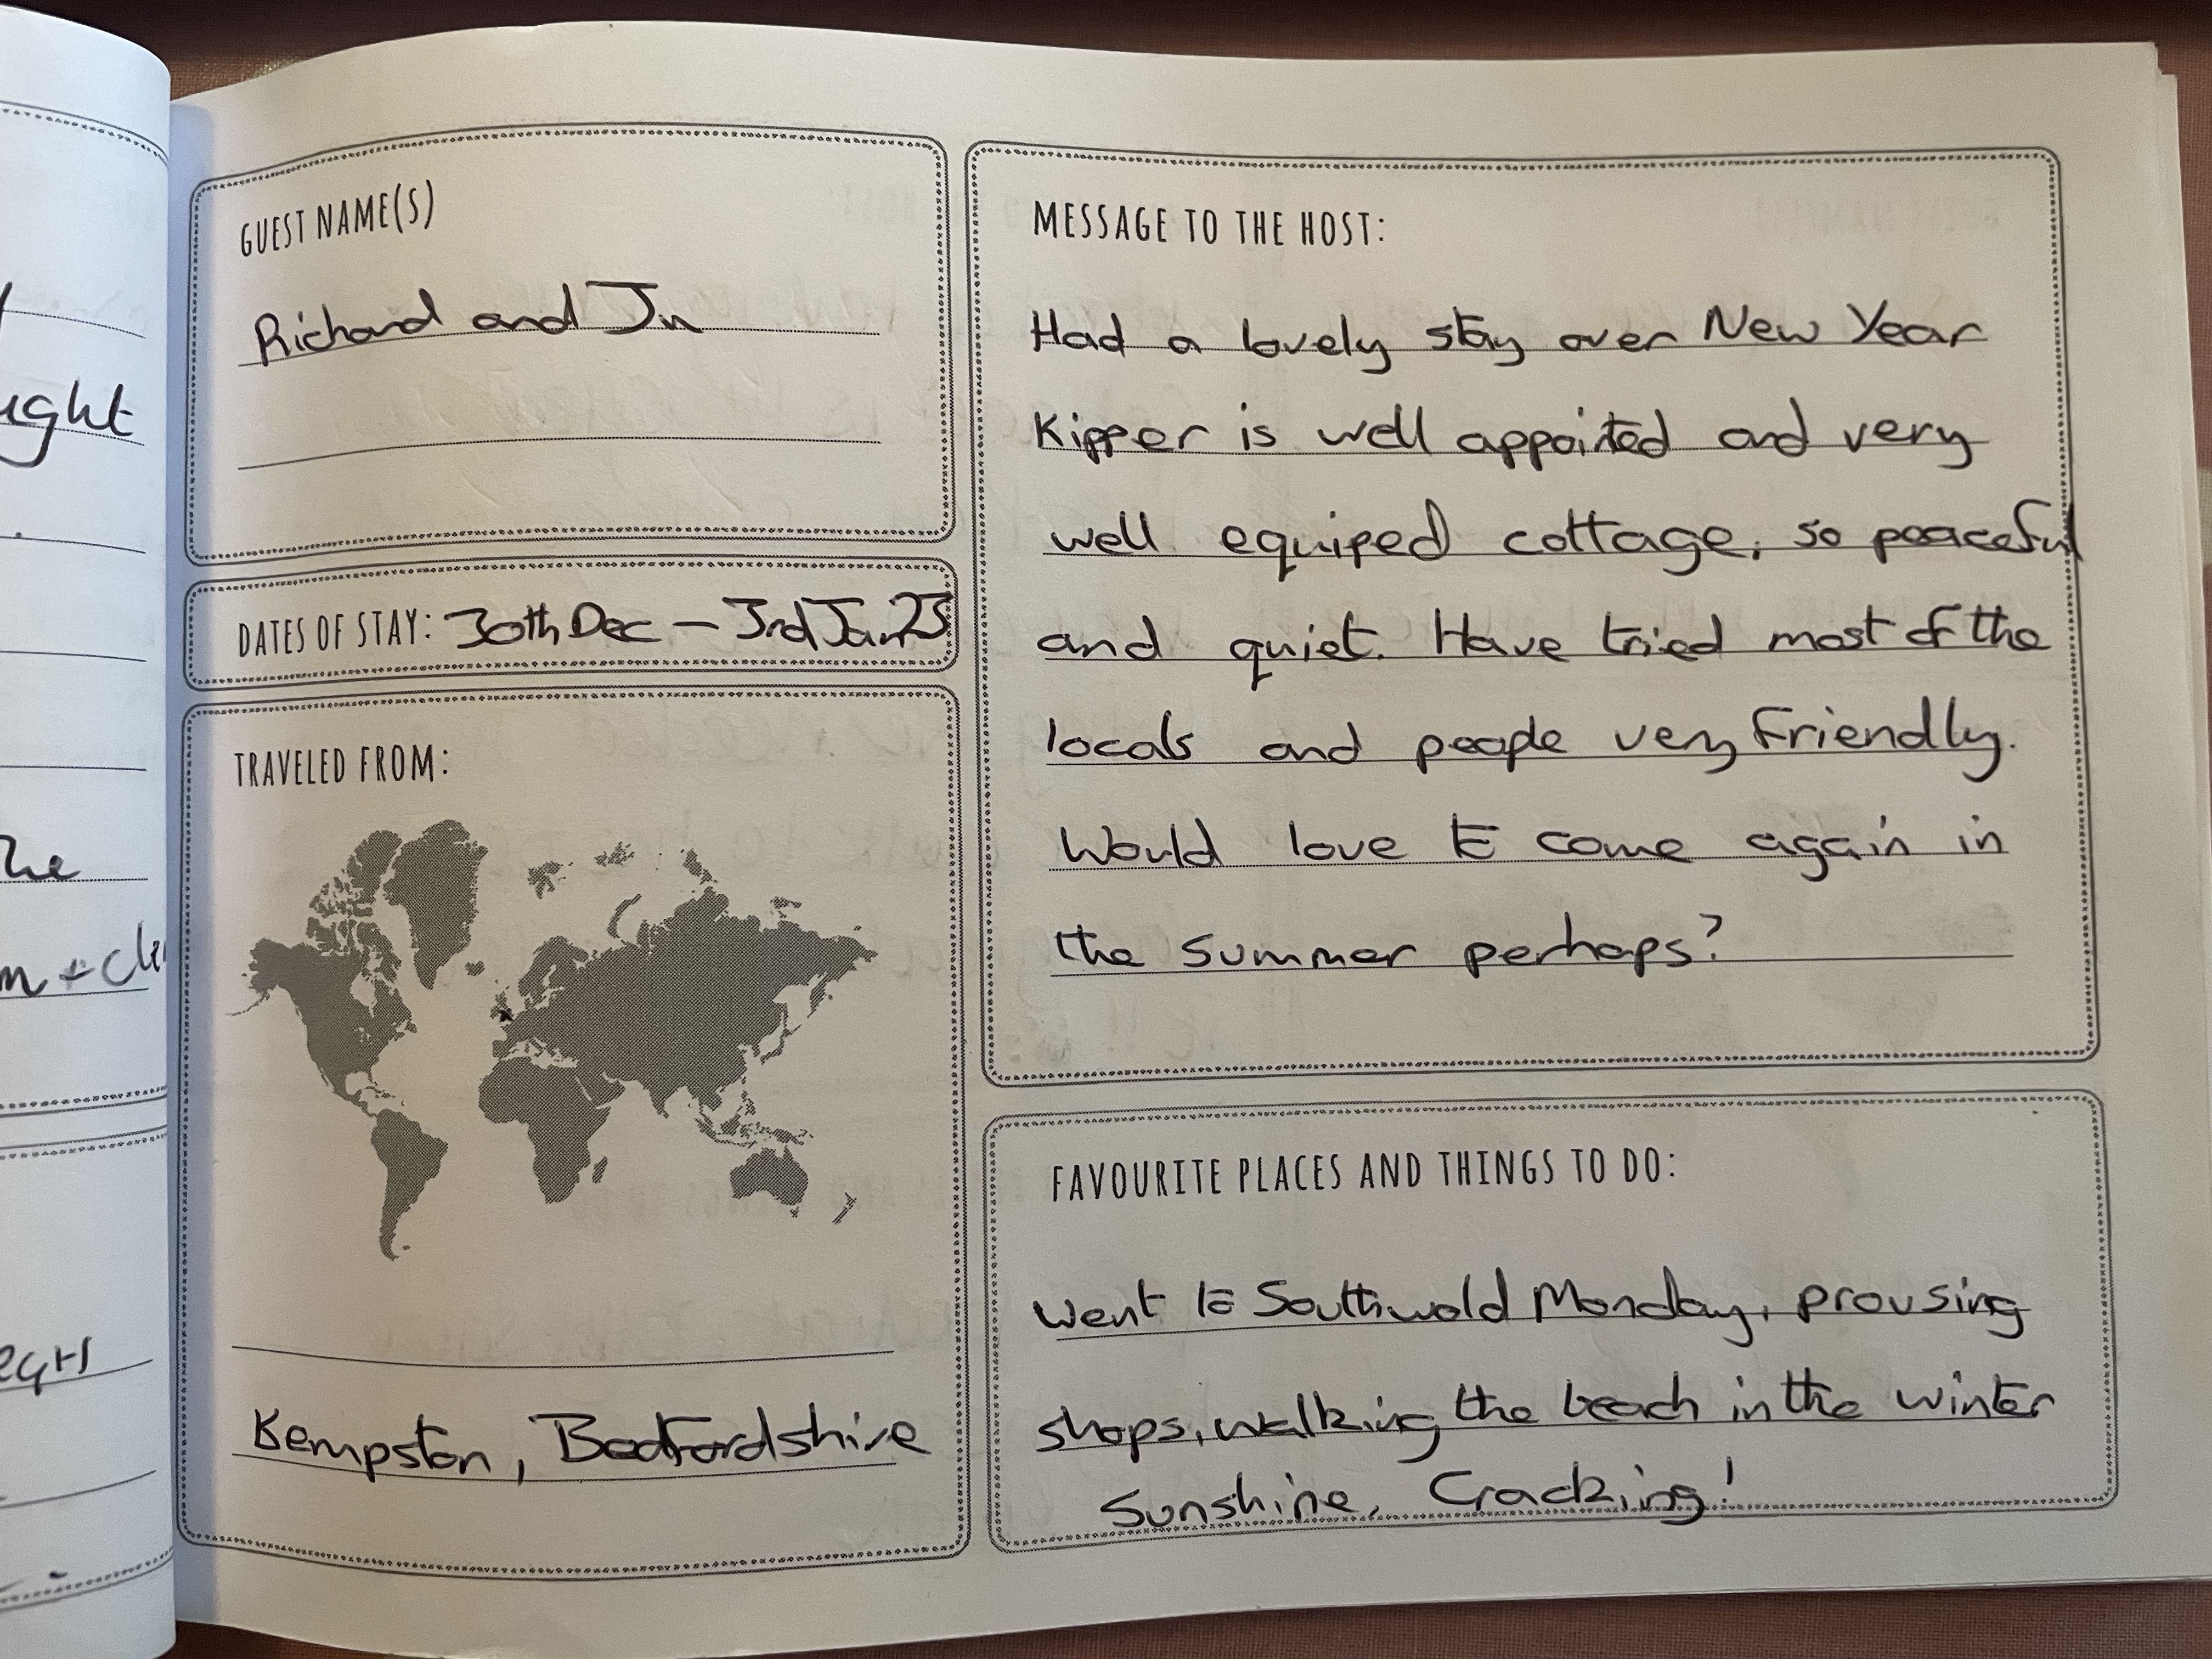 ught
he
m + cle
GUEST NAME(S)
Richard and Ju
DATES OF STAY: 30th Dec - 3rd Jan 23
TRAVELED FROM:
Kempston, Bedfordshire
MESSAGE TO THE HOST:
Had a lovely stay over New Year
Kipper is well appointed and very
well equiped cottage, so peaceful
and quiet. Have tried most of the
locals and people very Friendly.
Would love to come again in
the summer perhaps?
FAVOURITE PLACES AND THINGS TO DO:
Went to Southwold Monday, prousing
shops, walking the beach in the winter
Sunshine, Cracking!